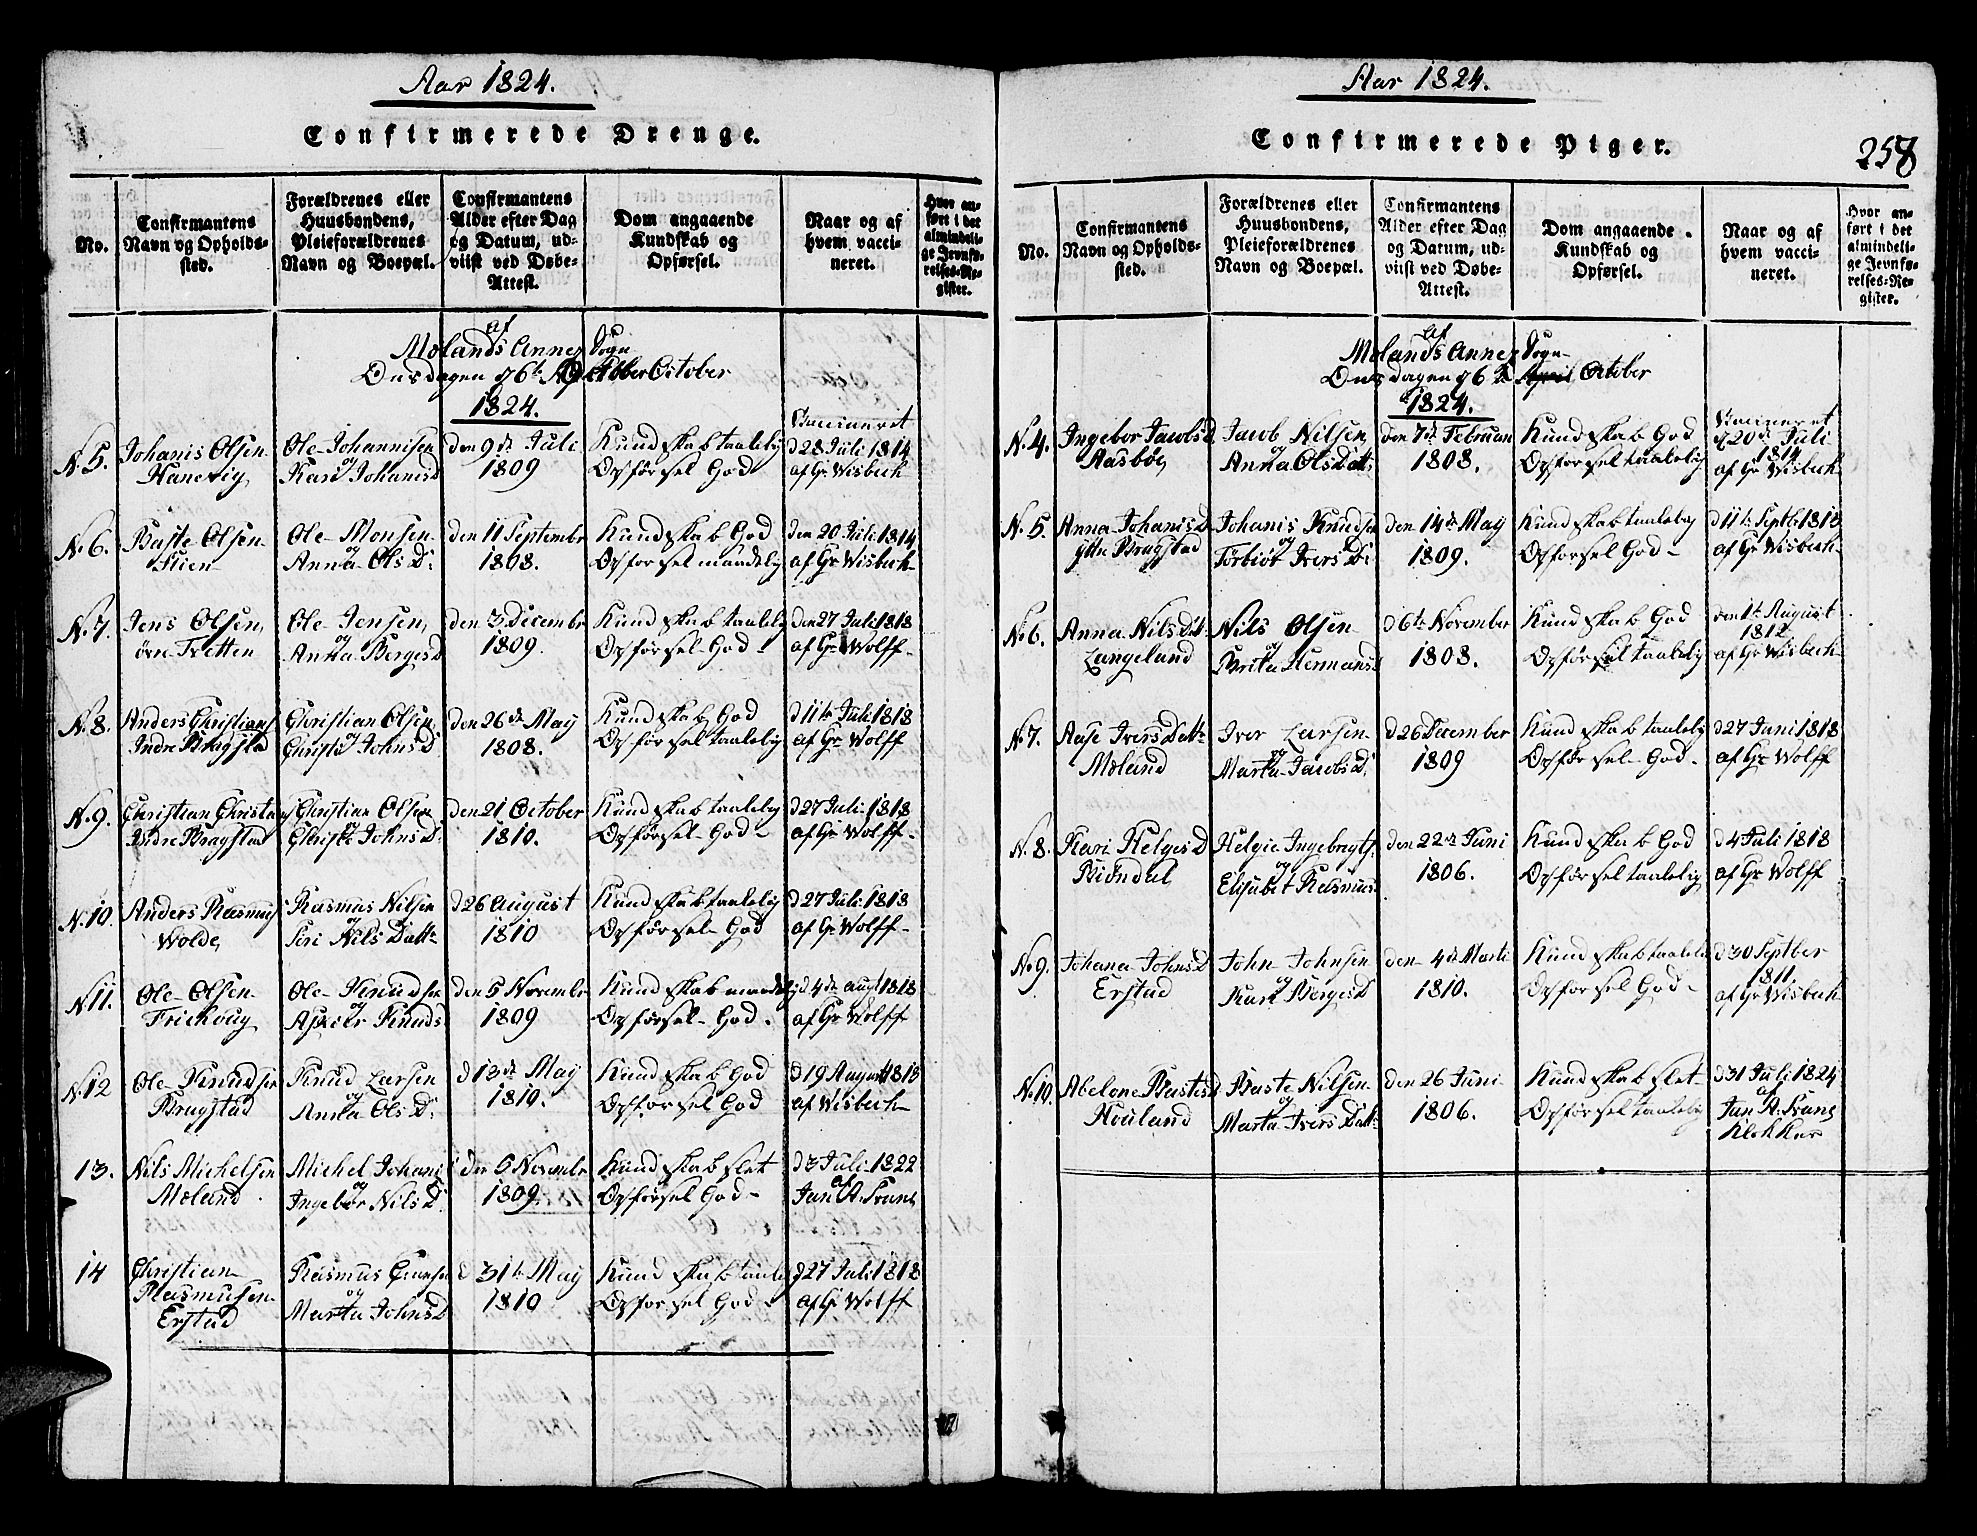 Aar 1824.
Confirmerede Drenge.
No.
Confirmantens
Navn og Opholds-
sted.
Forældrenes eller
Huusbondens,
Pleieforældrenes
Navn og Boepæl.
Confirmantens
Alder efter Dag
og Datum, ud-
viist ved Døbe-
Attest.
Dom angaaende
Kundskab og
Opførsel.
Naar og af
hvem vacci-
neret.
Hvor an-
ført i det
almindeli-
ge Jevnfø-
relses-Re-
gister.
af
Molands Annex Sogn
Onsdagen d 6te October
1824.
N. 5.
Johanis Olsen
Hanevig
Ole Johannisen
og
Kari Johanisd
den 9de Juli
1809
Kundskab taalelig
Opførsel God
Vaccineret
d 28 Juli 1814
af Gr Wisbech
N. 6.
Baste Olsen
Stien
Ole Monsen
og
Anna Ols D:
den 11 Septembr
1808.
Kundskab God
Opførsel maadelig
den 20 Juli 1814
af Gr Wisbech
N. 7.
Jens Olsen
øvre Tvetten
Ole Jensen,
og
Anna Berges D
den 3 Decembr
1809.
Kundskab taalelig
Opførsel God
den 27 Juli 1818
af Gr Wolff
N. 8.
Anders Christians
Indre Bragstad
Christian Olsen
og
Christi Johns D
den 26de May
1808.
Kundskab God
Opførsel taalelig
d 11te Juli 1818
af Gr Wolff
N. 9.
Christian Christians
Indre Bragstad
Christian Olsen
og
Christi Johns D.
den 21 October
1810.
Kundskab taalelig
Opførsel God
d 27 Juli 1818
af Gr Wolff
N. 10.
Anders Rasmus
Wolde
Rasmus Nilsen
og
Siri Nils Datter
d 26 August
1810
Kundskab taalelig
Opførsel God
d 27 Juli 1818
af Gr Wolff
N. 11.
Ole Olsen
Trichoug
Ole Knudsen
og
Knuds
den 5 Novembr
1809
Kundskab maadelig
Opførsel God.
d 4de Augt 1818
af Gr Wolff
N. 12
Ole Knudsen
Bragstad
Knud Larsen
og
Anna Ols D:
d 13de May
1810.
Kundskab God
Opførsel God
d 19 August 1818
af Wisbech
13.
Nils Michelsen
Moland
Michel Johani
og
Ingebor Nils D.
den 5 Novembr
1809.
Kundskab slet
Opførsel God
d 3 Juli 1822
af
Jan A. Trane
14
Christian
Rasmusen
Erstad
Rasmus
og
Marta Johns D
d 31te May
1810
Kundskab taalelig
Opførsel God
d 27 Juli 1818
af Gr Wolff
Aar 1824.
258
Confirmerede Piger.
No.
Confirmantens
Navn og Opholds-
sted.
Forældrenes eller
Huusbondens,
Pleieforældrenes
Navn og Boepæl.
Confirmantens
Alder efter Dag
og Datum, ud-
viist ved Døbe-
Attest.
Dom angaaende
Kundskab og
Opførsel.
Naar og af
hvem vacci-
neret.
Hvor an-
ført i det
almindeli-
ge Jevnfø-
relses-Re-
gister.
af
Molands Annex Sogn
Onsdagen d 6te April October
1824.
N. 4.
Ingebor Jacobs D
Aasbøe
Jacob Nilsen
og
Anna Ols Datt:
den 7de Februari
1808.
Kundskab God
Opførsel taalelig
Vaccineret
d 20de Juli
1814
af Gr Wisbech
N. 5.
Anna Johanis D.
Ytre Bragstad
Johanis Knudsen
og
Torbiør Ivers D:
den 14de May
1809.
Kundskab taalelig
Opførsel God
d 11te Septbr 1813
af Gr Wisbech
No 6.
Anna Nils Datt
Langeland
Nils Olsen
og
Brita Hermansd
d 6te November
1808.
Kundskab God
Opførsel taalelig
den 1te August
1812
af Gr Wisbech
N. 7.
Aase Ivers Datter
Moland
Iver Larsen
og
Marta Jacobs D.
d 26 December
1809
Kundskab taalelig
Opførsel God
d 27 Juni 1818
af Gr Wolff
N. 8.
Kari Helges D
Biøndal
Helgie Ingebregts
og
Elisabet Rasmus
den 22de Juni
1806.
Kundskab God
Opførsel taalelig
d 4 Juli 1818
af Gr Wolff
No 9.
Johana Johns D
Erstad
John Johnsen
og
Kari Berges D
den 4de Marti
1810.
Kundskab taalelig
Opførsel God
d 30 Septber
1811.
af Gr Wisbech
No 10.
Abelone Bastes D
Houland
Baste Nilsen
og
Marta Ivers Datt
den 26 Juni
1806.
Kundskab slet
Opførsel taalelig
d 31 Juli 1824
af
Jan A. Trane
Klokker